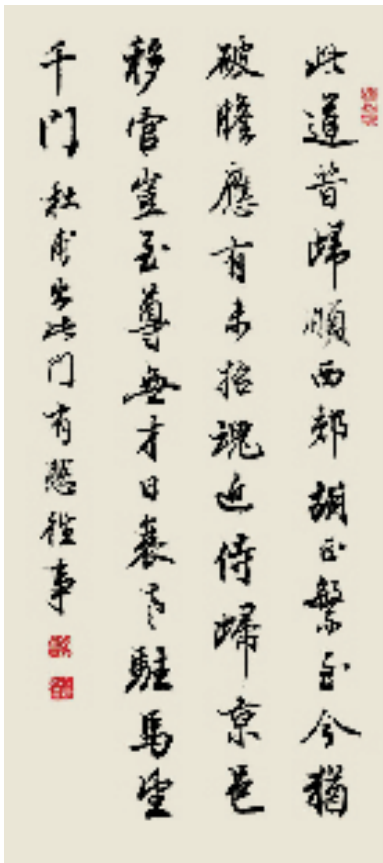 此道昔歸順西郊胡正繁至今猶
破膽應有未招魂近侍歸京邑
移官豈至尊無才日衰老駐馬望
千門 杜甫出此門有悲往事